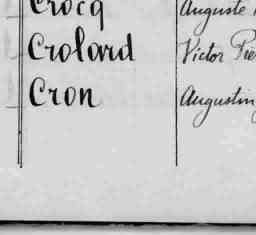 Crocq Auguste
Crolard Victor Pie
Cron Augustin